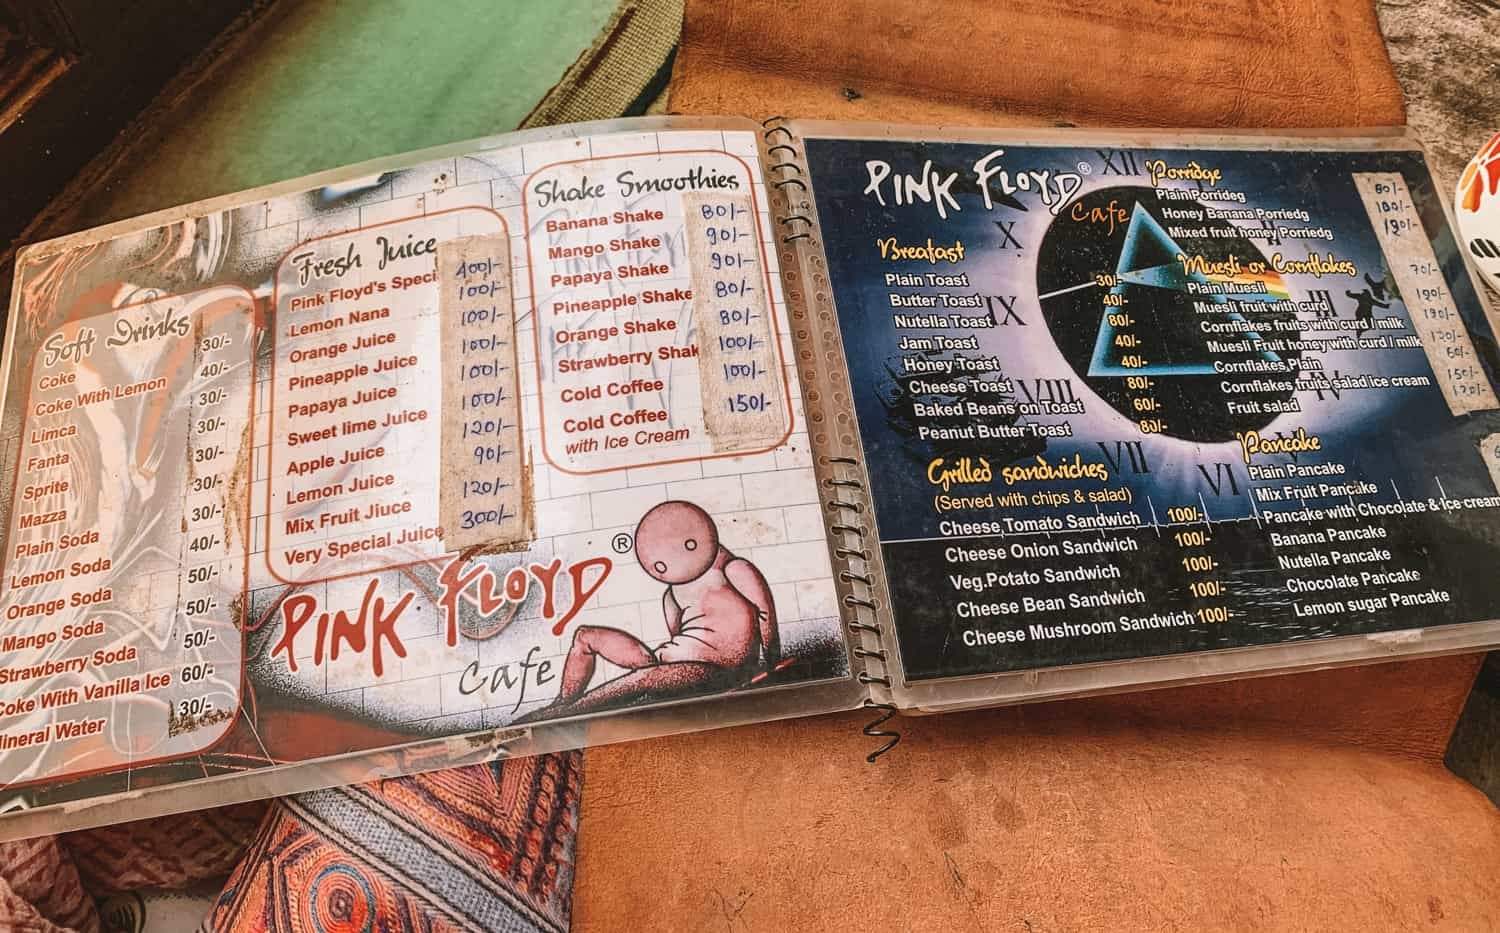 Soft Drinks
Coke 30/-
Coke With Lemon 40/-
Limca 30/-
Fanta 30/-
Sprite 30/-
Mazza 30/-
Plain Soda 30/-
Lemon Soda 40/-
Orange Soda 50/-
Mango Soda 50/-
Strawberry Soda 50/-
Coke With Vanilla Ice 60/-
ineral Water 30/-
Fresh Juice
Pink Floyd's Speci 400/-
Lemon Nana 100/-
Orange Juice 100/-
Pineapple Juice 100/-
Papaya Juice 100/-
Sweet lime Juice 100/-
Apple Juice 120/-
Lemon Juice 90/-
Mix Fruit Jiuce 120/-
Very Special Juice 300/-
Shake Smoothies
Banana Shake 80/-
Mango Shake 90/-
Papaya Shake 90/-
Pineapple Shake 80/-
Orange Shake 80/-
Strawberry Shak 100/-
Cold Coffee 100/-
Cold Coffee 150/-
with Ice Cream
PINK FLOYD®
Cafe
PINK FLOYD®
Cafe
XII
X
IX
VIII
VII
VI
III
Breafast
Plain Toast 30/-
Butter Toast 40/-
Nutella Toast 80/-
Jam Toast 40/-
Honey Toast 40/-
Cheese Toast 80/-
Baked Beans on Toast 60/-
Peanut Butter Toast 80/-
Grilled sandwiches
(Served with chips & salad)
Cheese Tomato Sandwich 100/-
Cheese Onion Sandwich 100/-
Veg.Potato Sandwich 100/-
Cheese Bean Sandwich 100/-
Cheese Mushroom Sandwich 100/-
Porridge
Plain Porrideg
Honey Banana Porriedg
Mixed fruit honey Porriedg
Muesli or Cornflakes
Plain Muesli 70/-
Muesli fruit with curd
Cornflakes fruits with curd / milk
Muesli Fruit honey with curd / milk
Cornflakes Plain
Cornflakes fruits salad ice cream
Fruit salad
Pancake
Plain Pancake
Mix Fruit Pancake
Pancake with Chocolate & Ice cream
Banana Pancake
Nutella Pancake
Chocolate Pancake
Lemon sugar Pancake